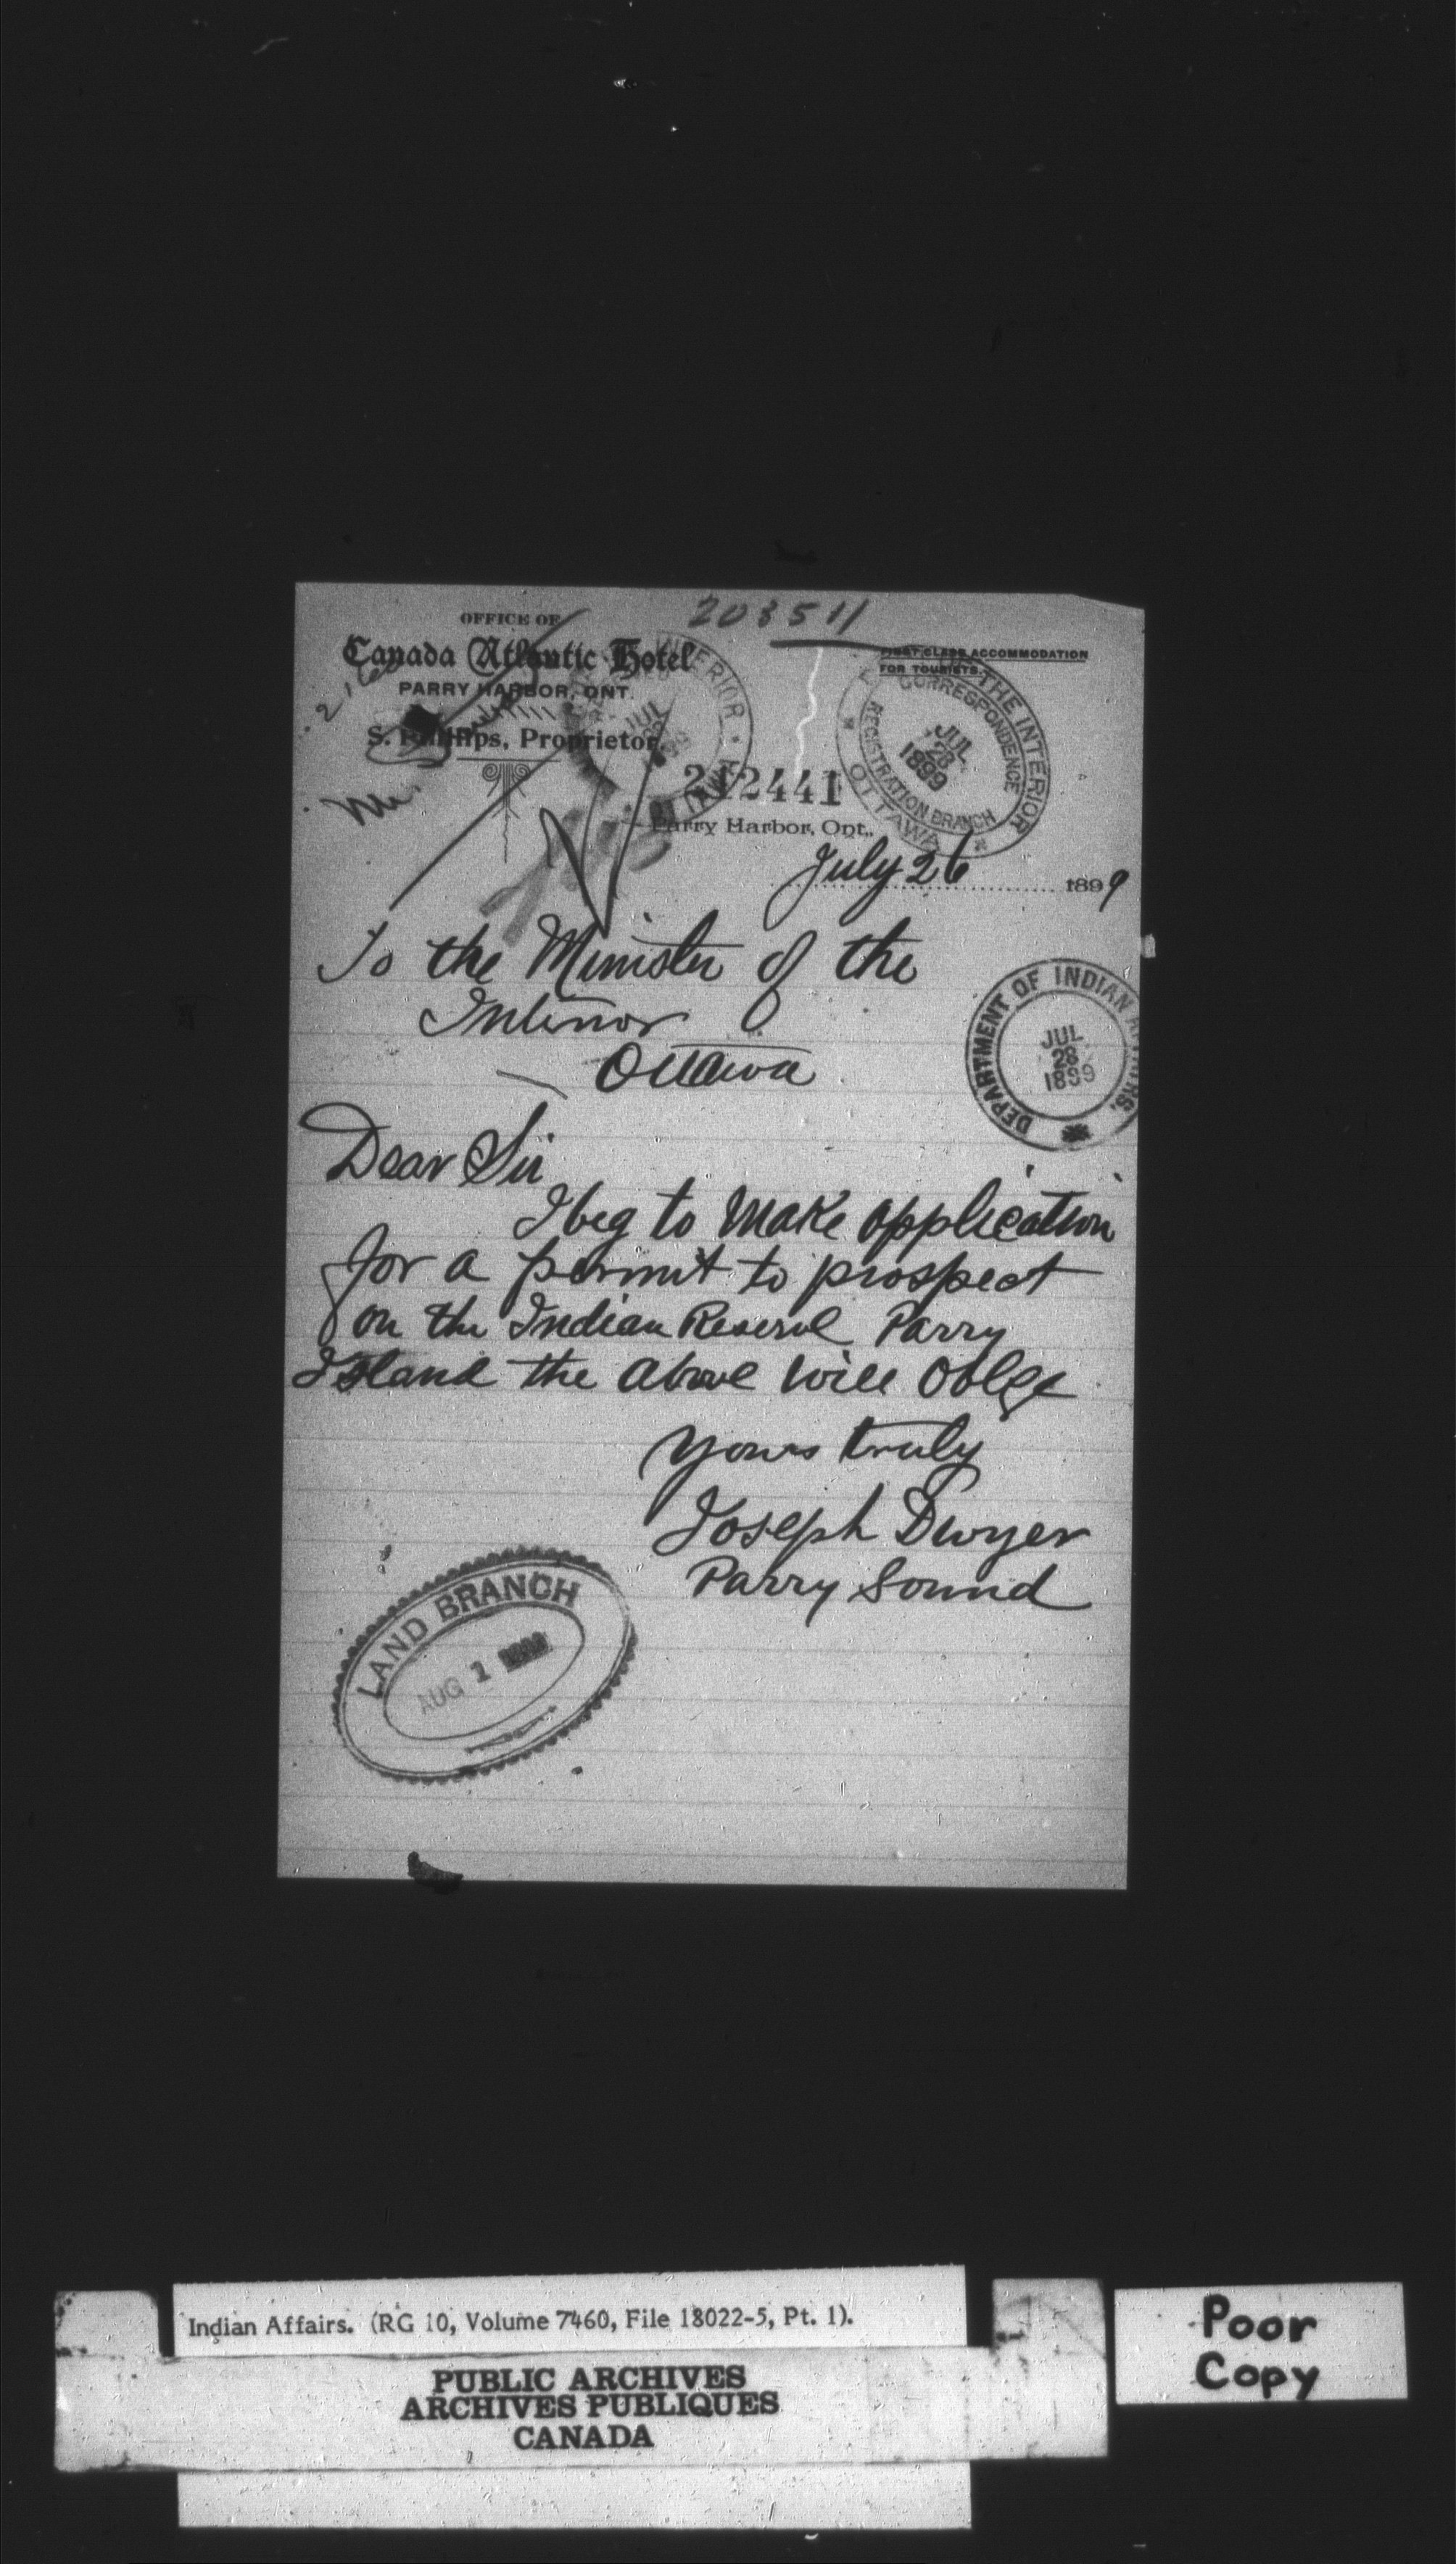 203511
OFFICE OF
Canada Atlantic Hotel
PARRY HARBOR, ONT.
S. Phillips, Proprietor
FIRST CLASS ACCOMMODATION
FOR TOURISTS.
INTERIOR
JUL
OTTAWA
THE INTERIOR
CORRESPONDENCE
REGISTRATION BRANCH
JUL
28
1899
OTTAWA
212441
Parry Harbor, Ont.,
July 26 1899
To the Minister of the
Interior
Ottawa
DEPARTMENT OF INDIAN AFFAIRS.
JUL
28
1899
Dear Sir
I beg to make application
for a permit to prospect
on the Indian Reserve Parry
Island the above will oblge
Yours truly
Joseph Dwyer
Parry Sound
LAND BRANCH
AUG 1
Indian Affairs. (RG 10, Volume 7460, File 18022-5, Pt. 1).
PUBLIC ARCHIVES
ARCHIVES PUBLIQUES
CANADA
Poor
Copy